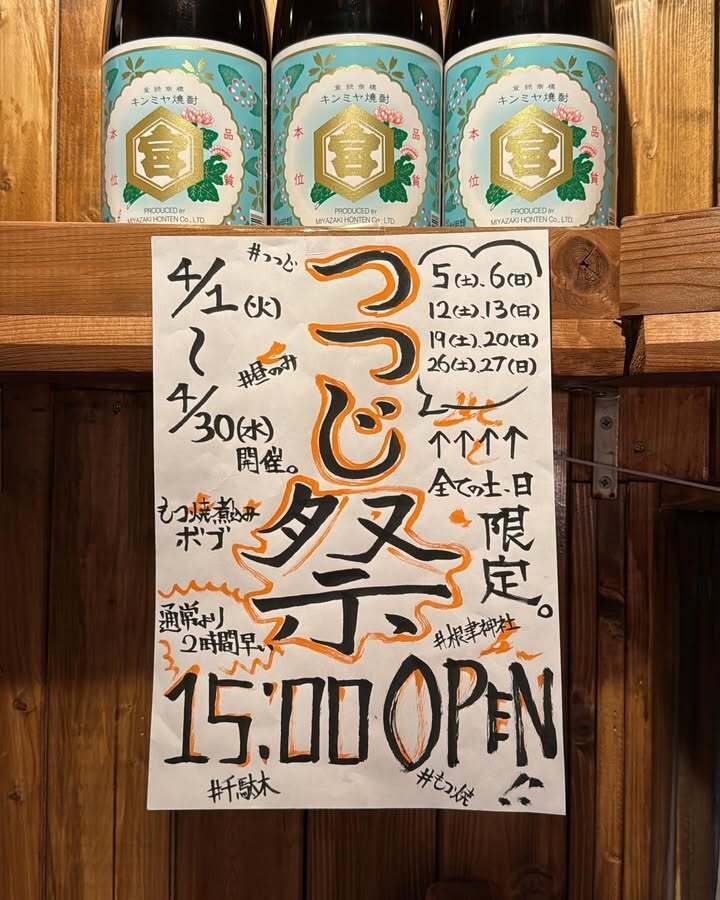 登録商標
キンミヤ焼酎
本位
品質
宮
PRODUCED BY
MIYAZAKI HONTEN Co., LTD.
登録商標
キンミヤ焼酎
本位
品質
宮
PRODUCED BY
MIYAZAKI HONTEN Co., LTD.
登録商標
キンミヤ焼酎
本位
品質
宮
PRODUCED BY
MIYAZAKI HONTEN Co., LTD.
#つつじ
つつじ祭
4/1(火)
〜
4/30(水)
開催。
#昼のみ
5(土)、6(日)
12(土)、13(日)
19(土)、20(日)
26(土)、27(日)
↑↑↑↑
全ての土、日
限定。
もつ焼煮込み
ボブ
#根津神社
通常より
2時間早い
15:00 OPEN!!
#千駄木
#もつ焼